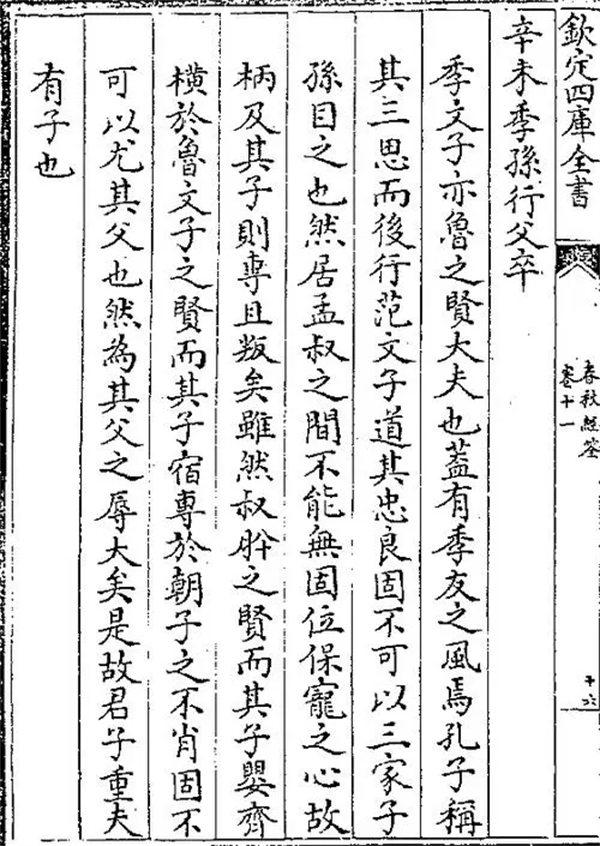 欽定四庫全書
春秋經筌
卷十一
十六
辛未季孫行父卒
季文子亦魯之賢大夫也葢有季友之風焉孔子稱
其三思而後行范文子道其忠良固不可以三家子
孫目之也然居孟叔之間不能無固位保寵之心故
柄及其子則專且叛矣雖然叔肸之賢而其子嬰齊
橫於魯文子之賢而其子宿專於朝子之不肖固不
可以尤其父也然為其父之辱大矣是故君子重夫
有子也